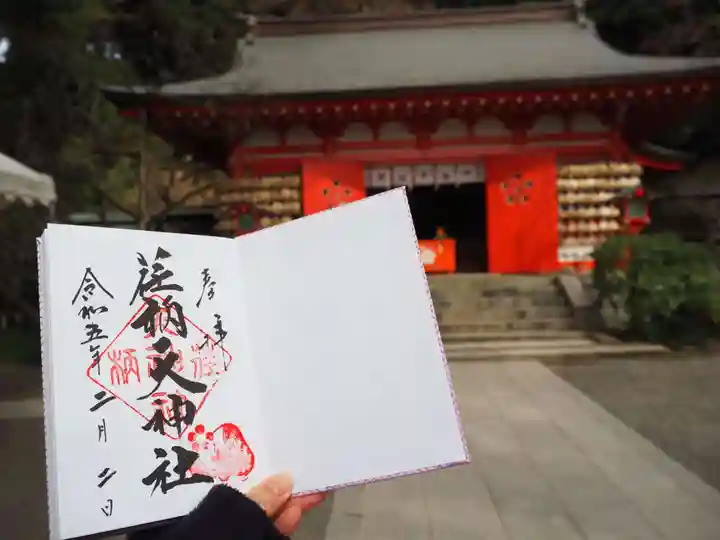 奉拝
荏柄天神社
令和五年二月二日